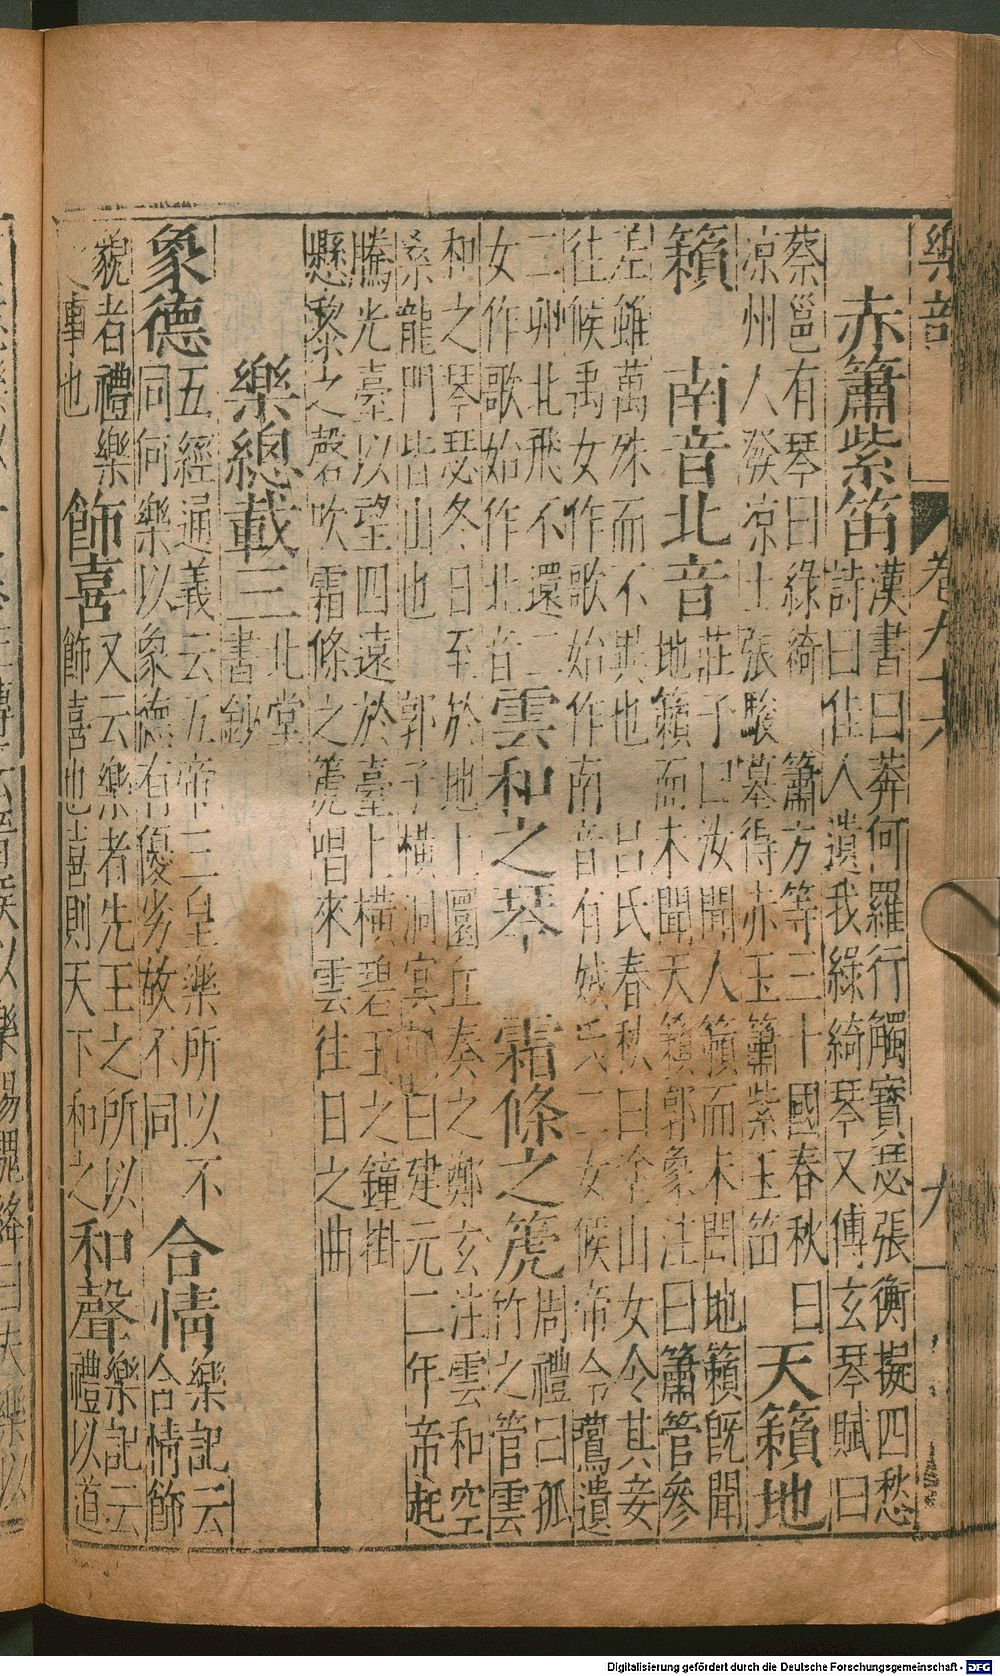 樂部 卷九十六 九
赤簫紫笛 漢書曰莽何羅行觸寶瑟張衡擬四愁
詩曰佳人遺我綠綺琴又傅玄琴賦曰
蔡邕有琴曰綠綺 簫方等三十國春秋曰
涼州人發涼土張駿墓得赤玉簫紫玉笛 天籟地
籟 南音北音 莊子曰汝聞人籟而未聞地籟既聞
地籟而未聞天籟郭象注曰簫管參
差雖萬殊而不異也 呂氏春秋曰塗山女令其妾
往候禹女作歌始作南音有娀氏二女候帝令鷰遺
二卵北飛不還二
女作歌始作北音 雲和之琴 霜條之箎 周禮曰孤
竹之管雲
和之琴瑟冬日至於地上圜丘奏之鄭玄注雲和空
桑龍門皆山也 郭子橫洞冥記曰建元二年帝起
騰光臺以望四遠於臺上橫碧玉之鐘掛
懸黎之磬吹霜條之箎唱來雲往日之曲
樂總載三 北堂
書鈔
象德 五經通義云五帝三皇樂所以不
同何樂以象德有優劣故不同 合情 樂記云
合情飾
貌者禮樂
之事也 飾喜 又云樂者先王之所以
飾喜也喜則天下和之 和聲 樂記云
禮以道